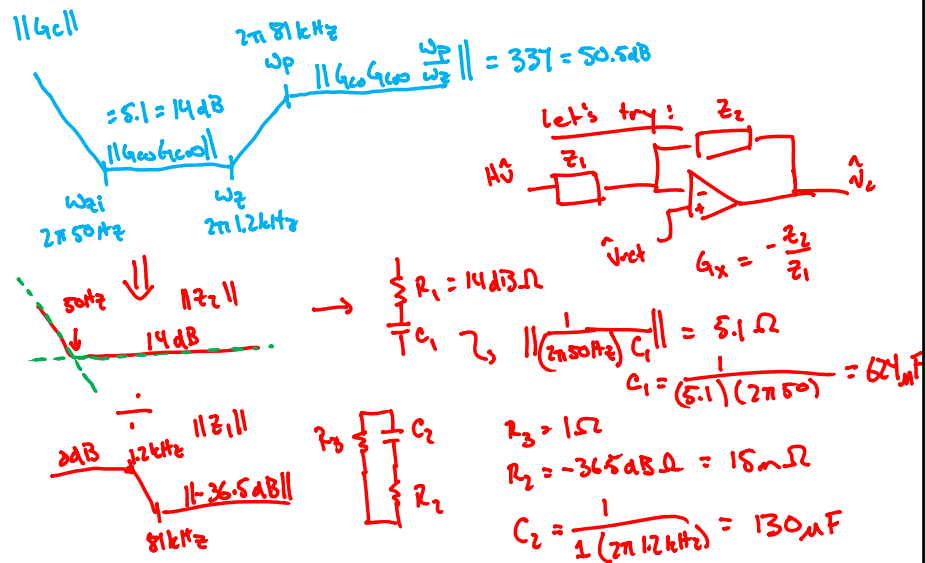 ||Gc||
2π 81kHz
ωp
||Gco Gc∞ ωp/ωz|| = 337 = 50.5dB
= 5.1 = 14dB
||Gco Gc∞||
ωzi
2π 50Hz
ωz
2π 1.2kHz
Let's try:
Z2
Z1
Hv̂
v̂c
v̂ref
Gx = -Z2/Z1
-
+
50Hz
||Z2||
14dB
R1 = 14dBΩ
C1
||1/((2π50Hz) C1)|| = 5.1Ω
C1 = 1/((5.1)(2π50)) = 624μF
÷
||Z1||
0dB
1.2kHz
||-36.5dB||
81kHz
R3
C2
R2
R3 = 1Ω
R2 = -36.5dBΩ = 15mΩ
C2 = 1/(1(2π1.2kHz)) = 130μF